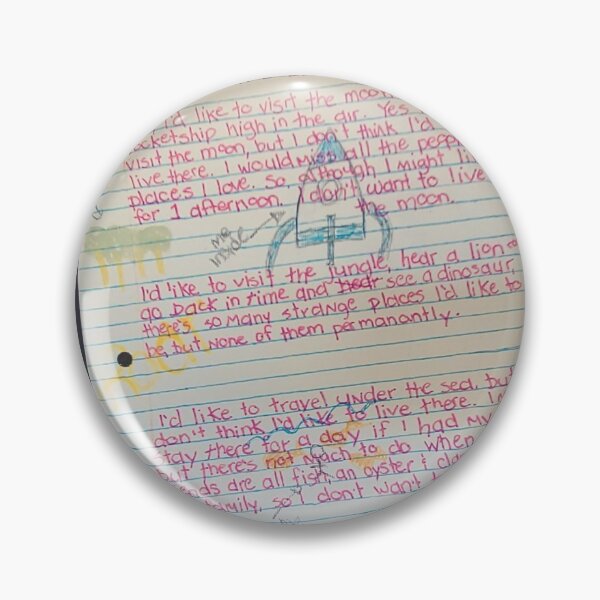 I'd like to visit the moon
rocketship high in the air. Yes
visit the moon, but I don't think I'd
live there. I would miss all the people
places I love. So, although I might li
for 1 afternoon. I don't want to live
the moon.
me
inside
I'd like to visit the jungle, hear a lion
go back in time and hear see a dinosaur,
there's so many strange places I'd like to
be, but none of them permanantly.
I'd like to travel under the sea, but
don't think I'd like to live there. I
stay there for a day if I had my
but there's not much to do when
are all fish, an oyster
family, so I don't want